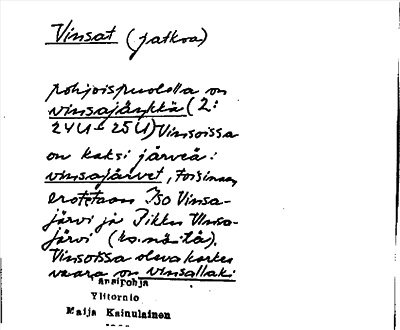 Vinsat (jatkoa)
pohjoispuolella on
vinsajänkkä (2:
24U-25U) Vinsoissa
on kaksi järveä:
vinsajärvet, toisinaan
erotetaan Iso Vinsa-
järvi ja Pikku Vinsa-
järvi (ks. nä itä).
Vinsoissa oleva korkea
vaara on vinsallaki
änsipohja
Ylitornio
Maija Kainulainen